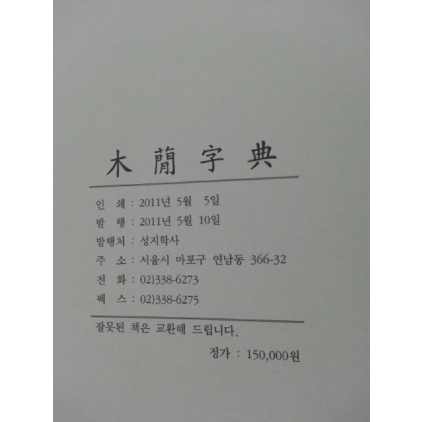 木蕑字典
인 쇄 : 2011년 5월 5일
발 행 : 2011년 5월 10일
발행처 : 성지학사
주 소 : 서울시 마포구 연남동 366-32
전 화 : 02)338-6273
팩 스 : 02)338-6275
잘못된 책은 교환해 드립니다.
정가 : 150,000원